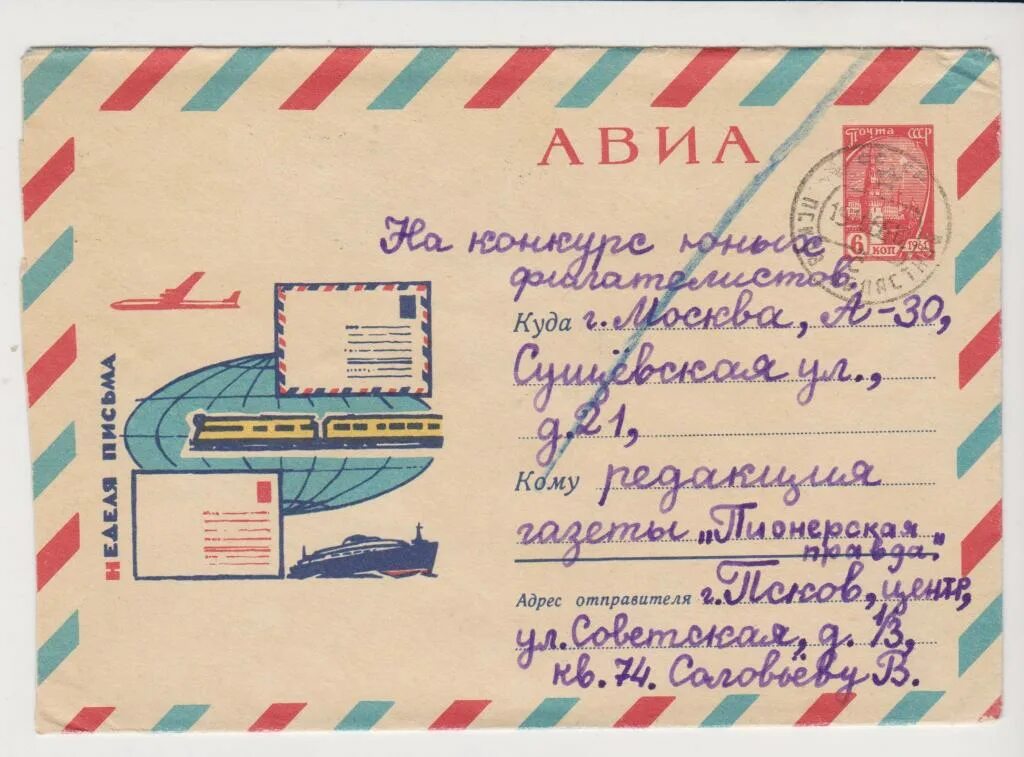 АВИА
Почта СССР
6 КОП 1961
На конкурс юных
филателистов.
Куда г. Москва, А-30,
Сущёвская ул.,
д.21,
Кому редакция
газеты „Пионерская
правда."
Адрес отправителя г. Псков, центр,
ул. Советская, д. 1/3,
кв. 74. Соловьёву В.
НЕДЕЛЯ ПИСЬМА
ПСКОВ